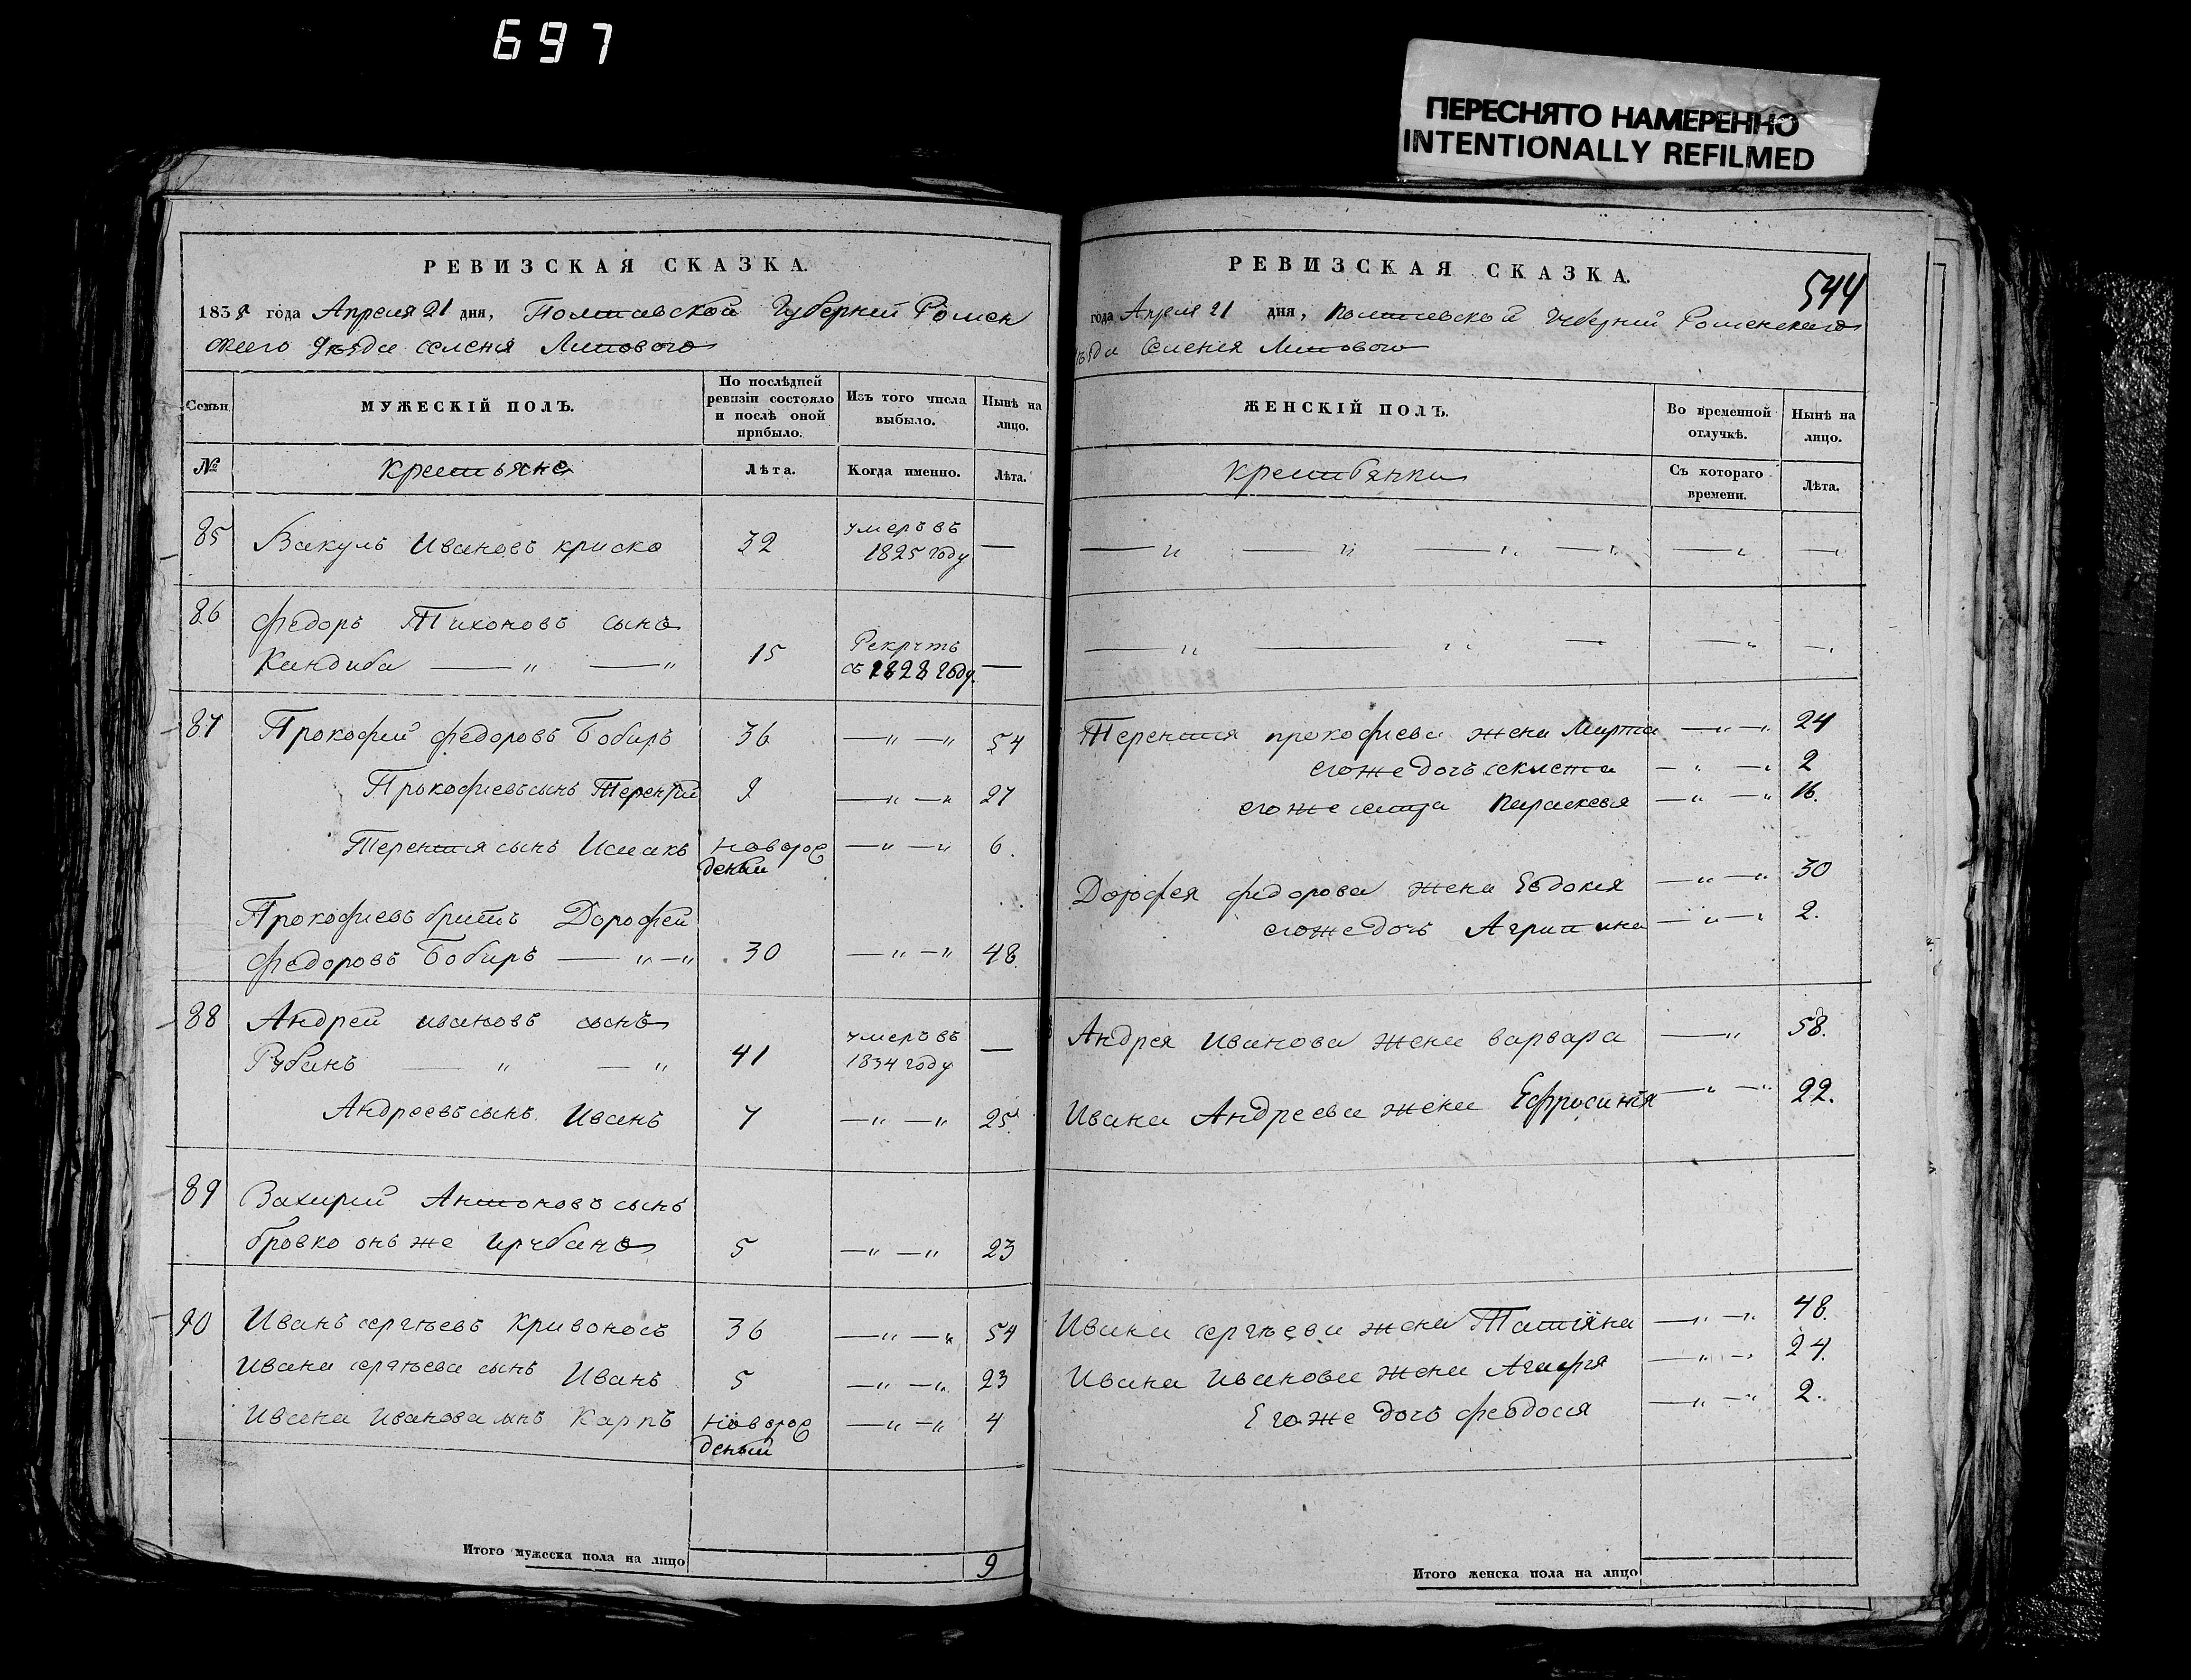 697
ПЕРЕСНЯТО НАМЕРЕННО
INTENTIONALLY REFILMED
РЕВИЗСКАЯ СКАЗКА.
1835 года Апреля 21 дня, Полтавской Губерніи Ромен
ского уезда селенія Липового
Семьи
МУЖЕСКІЙ ПОЛЪ.
По послѣдней ревизіи состояло и послѣ оной прибыло.
Изъ того числа выбыло.
Нынѣ на лицо.
№
крестьяне
Лѣта.
Когда именно.
Лѣта.
85 Вакулъ Ивановъ криско 32 умеръ въ 1825 году —
86 федоръ Тихоновъ сынъ
Кандиба — „ — „ 15 Рекрутъ съ 1828 году. —
87 Прокофий федоровъ Бобиръ 36 — „ — „ 54
Прокофиевъ сынъ Терентій 9 — „ — „ 27
Терентія сынъ Исаакъ новорож
деный — „ — „ 6.
Прокофиевъ братъ Дорофей
федоровъ Бобиръ — „ — „ 30 — „ — „ 48.
88 Андрей ивановъ сынъ
Рубанъ — „ — „ 41 умеръ въ 1834 году —
Андреевъ сынъ Иванъ 7 — „ — „ 25.
89 Захарий Антоновъ сынъ
бровко онъ же 5 — „ — „ 23
90 Иванъ сергѣевъ Кривоносъ 36 — „ — „ 54
Ивана сергѣева сынъ Иванъ 5 — „ — „ 23
Ивана Иванова сынъ Карпъ новорож
деный — „ — „ 4
Итого мужеска пола на лицо 9
РЕВИЗСКАЯ СКАЗКА.
544
года Апреля 21 дня, Полтавской Губерніи Роменского
уезда селенія Липового
ЖЕНСКІЙ ПОЛЪ.
Во временной отлучкѣ.
Нынѣ на лицо.
крестьянки
Съ котораго времени.
Лѣта.
— „ — „ — „ — „ — „ — „
— „ — „ — — „ —
Терентія прокофиева жена Марта — „ — „ 24
его же дочъ — „ — „ 2
его же сестра параскевія — „ — „ 16.
Дорофея федорова жена Евдокія — „ — „ 30
его же дочъ Агрипина — „ — „ 2.
Андрея Иванова жена варвара — „ 58.
Ивана Андреева жена Ефросинія — „ — „ 22.
Ивана сергѣева жена Татіяна — „ — „ 48.
Ивана Иванова жена Агафія — „ — „ 24.
Его же дочъ феодосія — „ — „ 2.
Итого женска пола на лицо